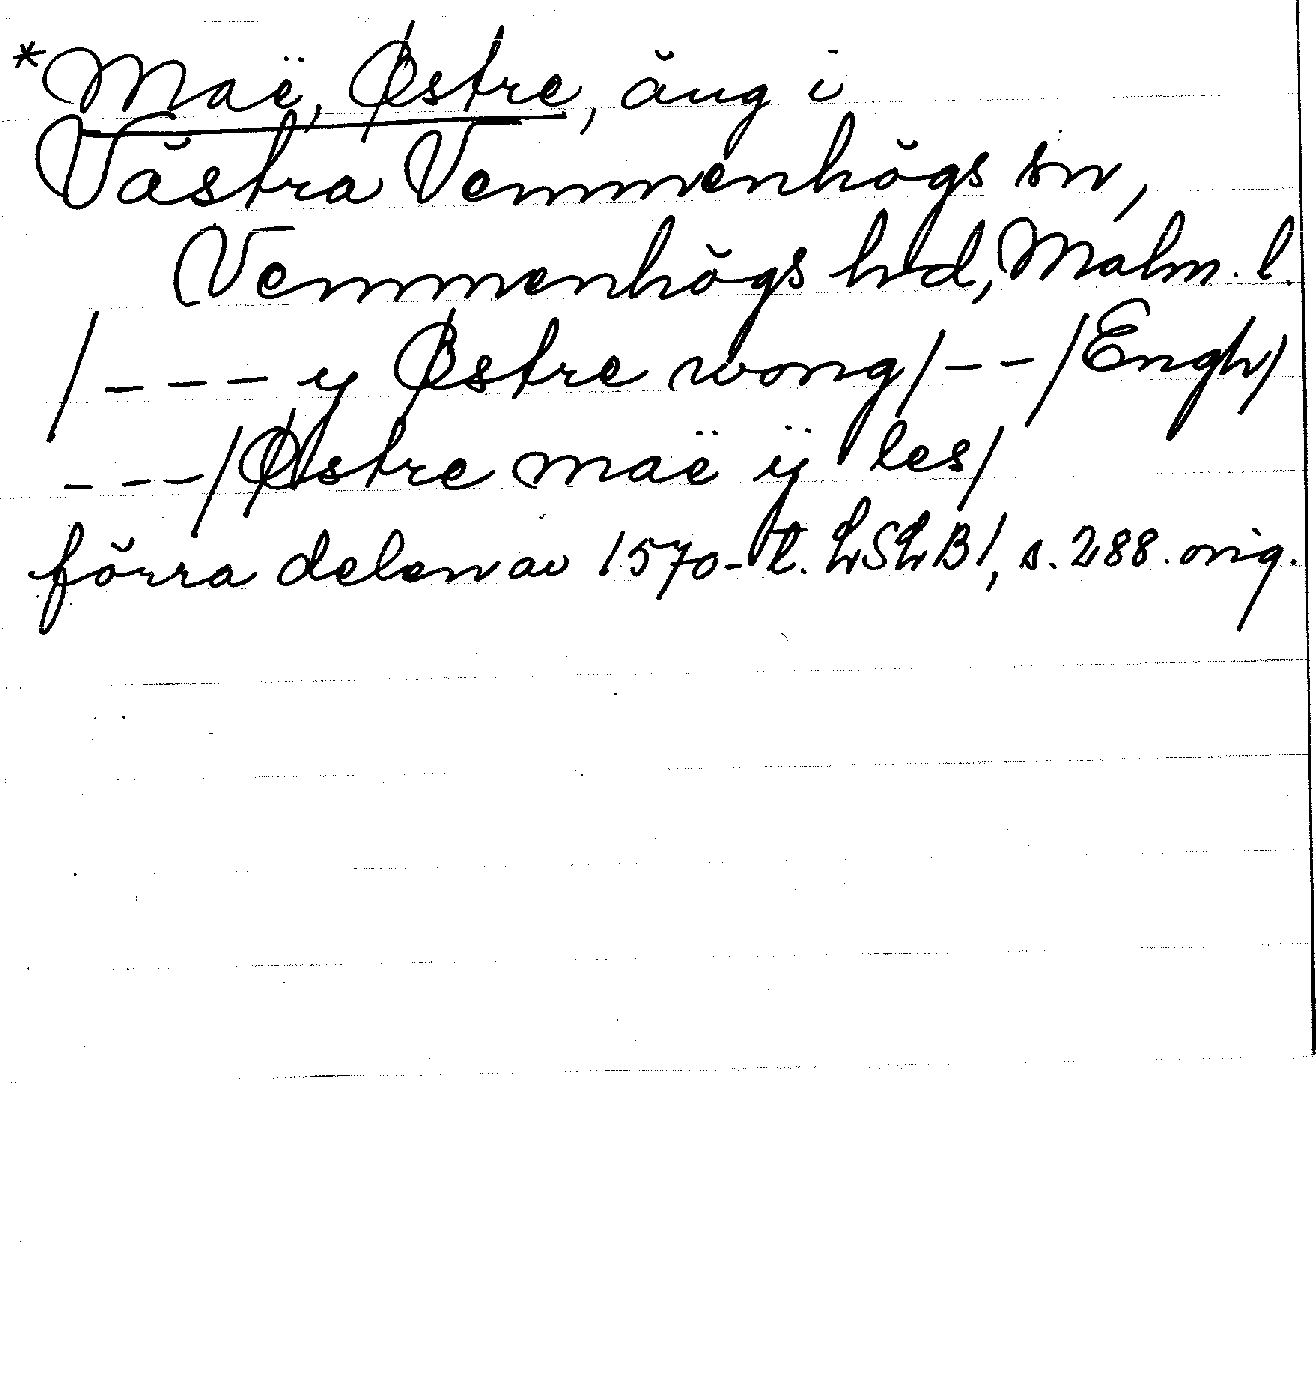 *Maë, Østre, äng i
Västra Vemmenhögs sn,
Vemmenhögs hd, Malm. l.
/ - - - y Østre wong / - - / Engh /
- - - / Østre maë ÿ les /
förra delen av 1570-t. LSLB1, s. 288. orig.